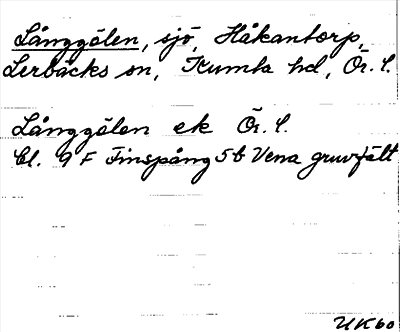 Långgölen, sjö, Håkantorp,
Lerbäcks sn, Kumla hd, Ör. l.
Långgölen ek Ör. l.
bl. 9 F Finspång 5 b Vena gruvfält
UK60